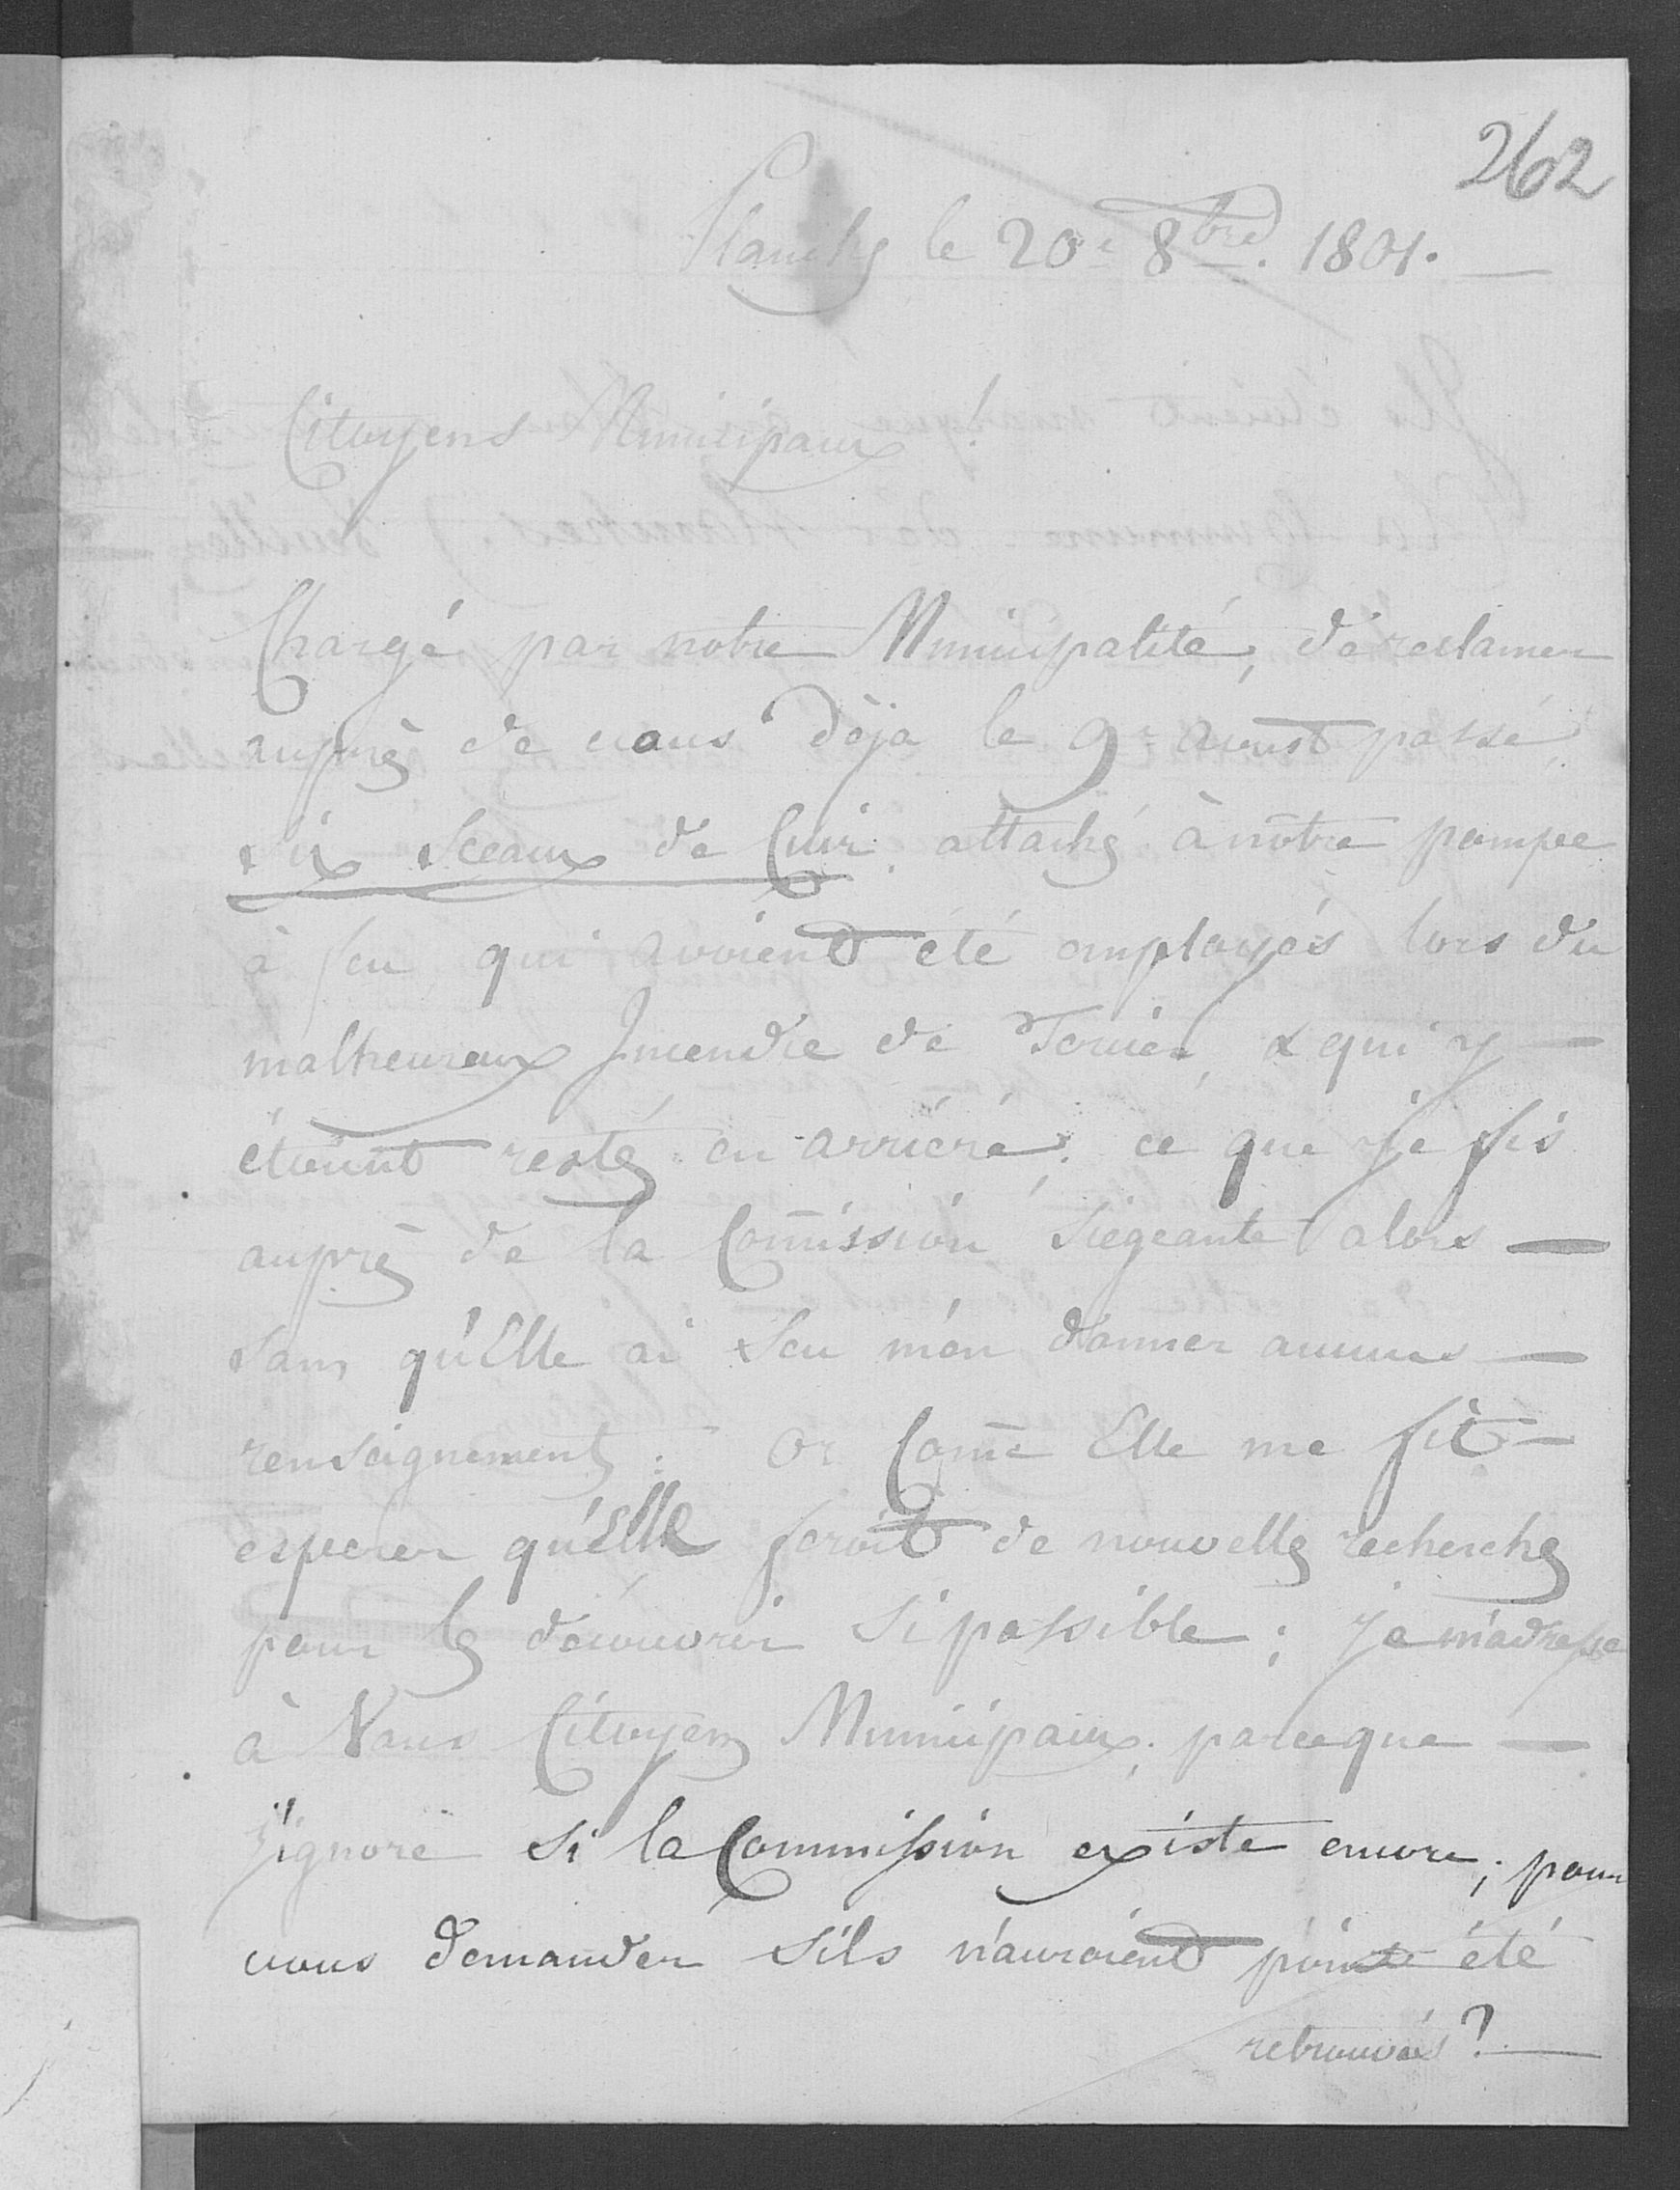 262
Planches le 20e 8bre. 1801.
Citoyens Municipaux !
Chargé par notre Municipalité, de reclamer
auprès de vous dèja le 9e. Aoust passé,
six sceaux de Cuir, attachés à nôtre pompe
à feu qui avoient été employés lors du
malheureux Incendie de & qui y
étoient restés en arriéré; ce que je fis
auprès de la Com̄ission Siègeante alors
sans qu'Elle ai Scu m'en donner aucuns
renseignements: Or Com̄e Elle me fit
esperer qu'Elle feroit de nouvelles recherches
pour les découvrir Si possible; je m'adresse
à Vous Citoyens Municipaux; parceque
j'ignore si la Commission existe encore; pour
vous demander s'ils n'auroient point été
retrouvés ?